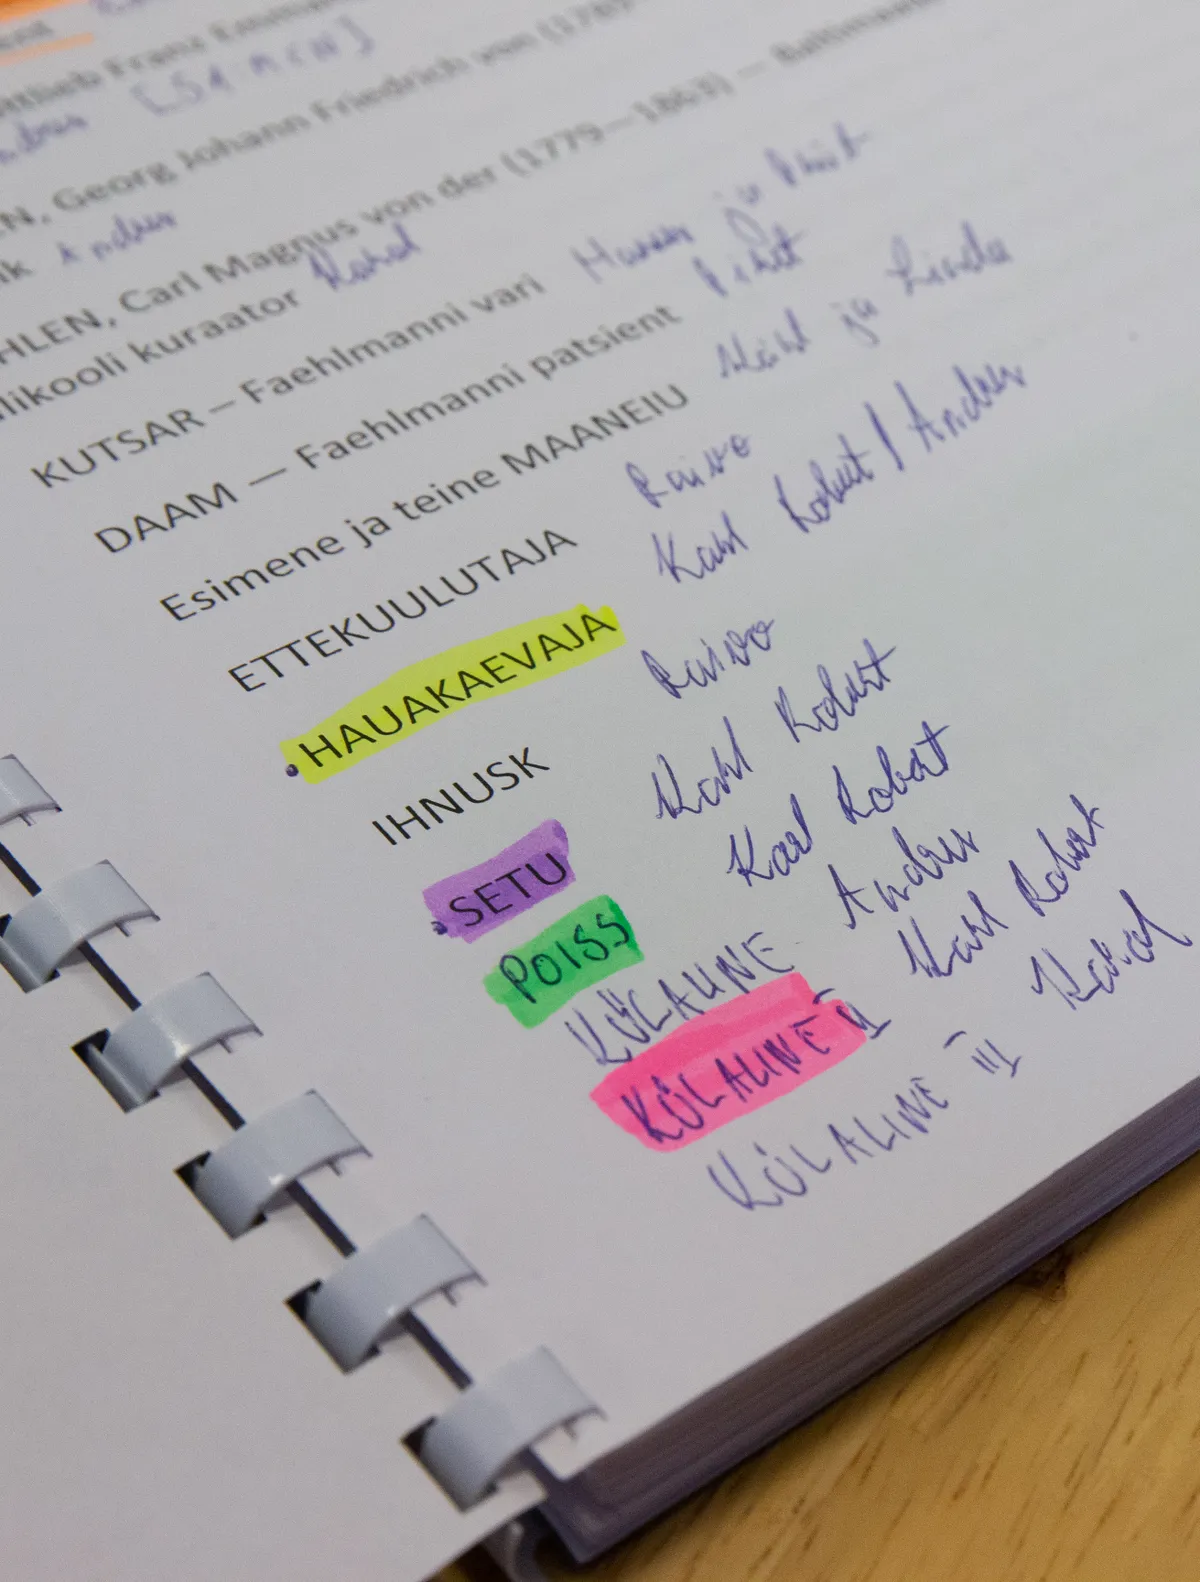 Andrus [SΛ:M(N)]
EN, Georg Johann Friedrich von (1785
ik Andrus
HLEN, Carl Magnus von der (1779—1863) — Baltimaade
likooli kuraator Karol
KUTSAR – Faehlmanni vari Hannes ja Priit
DAAM — Faehlmanni patsient Priit
Esimene ja teine MAANEIU Kärt ja Linda
ETTEKUULUTAJA Raivo
HAUAKAEVAJA Karl Robert / Andrus
IHNUSK Raivo
SETU Karl Robert
POISS Karl Robert
KÜLALINE Andrus
KÜLALINE II Karl Robert
KÜLALINE III Karol